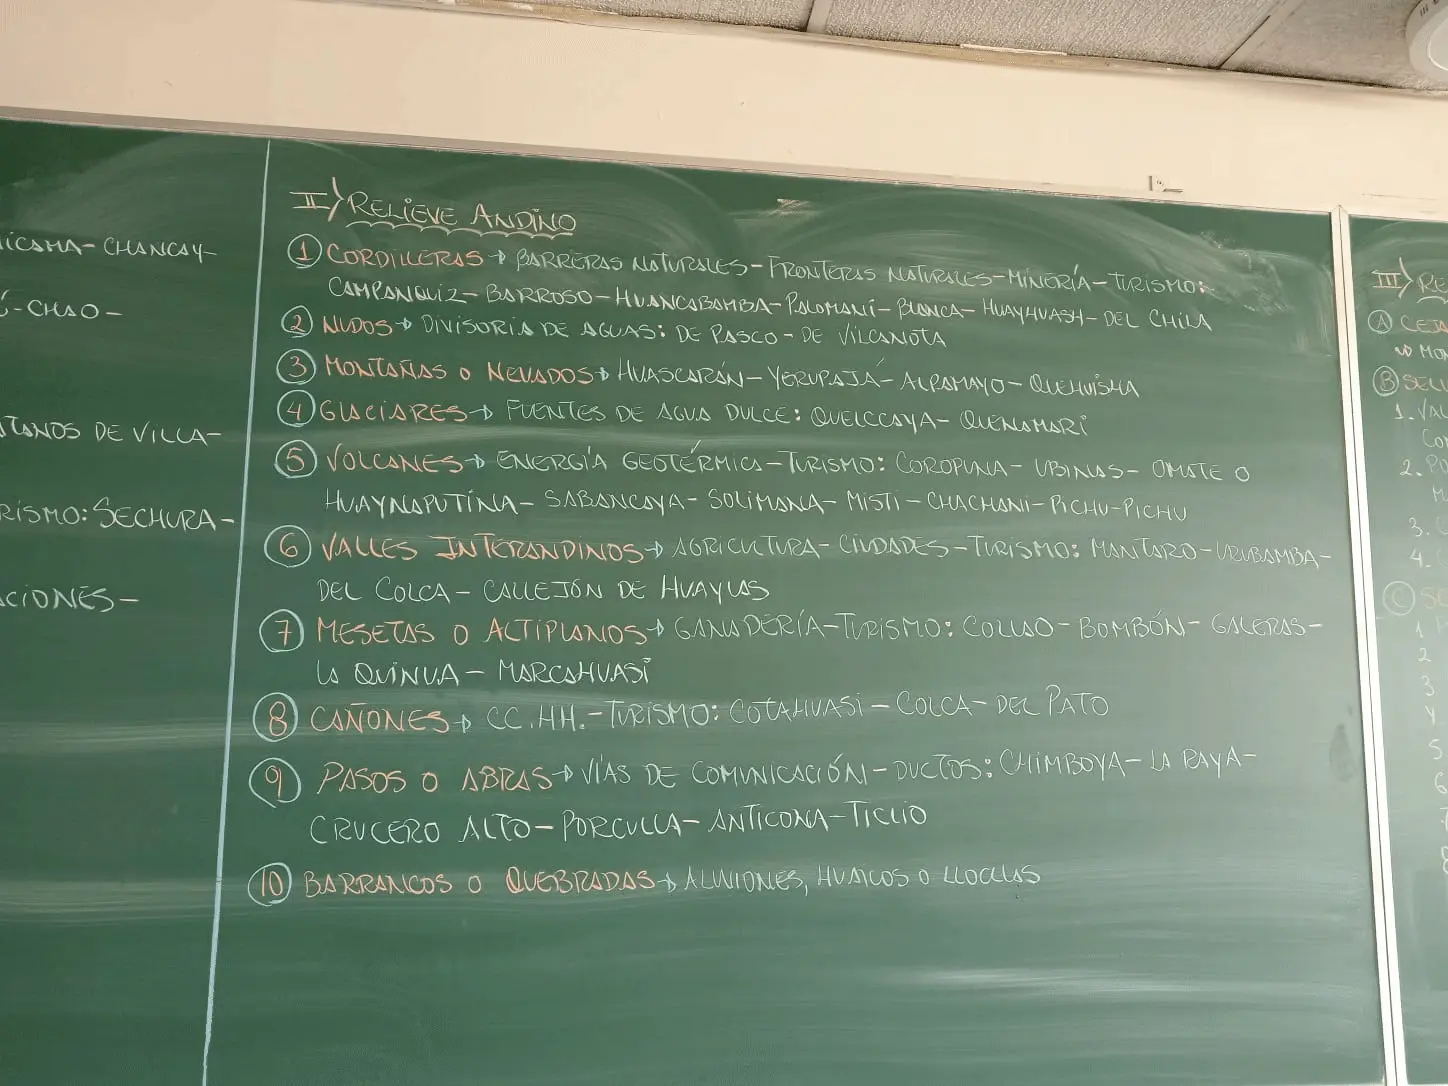 CHANCAY-
-CHAO-
DE VILLA-
TURISMO: SECHURA-
II) RELIEVE ANDINO
① CORDILLERAS → BARRERAS NATURALES - FRONTERAS NATURALES - MINERÍA - TURISMO:
CAMPANQUIZ - BARROSO - HUANCABAMBA - PALOMANÍ - BLANCA - HUAYHUASH - DEL CHILA
② NUDOS → DIVISORIA DE AGUAS: DE PASCO - DE VILCANOTA
③ MONTAÑAS O NEVADOS → HUASCARÁN - YERUPAJÁ - ALPAMAYO - QUEHUISHA
④ GLACIARES → FUENTES DE AGUA DULCE: QUELCCAYA - QUENAMARI
⑤ VOLCANES → ENERGÍA GEOTÉRMICA - TURISMO: COROPUNA - UBINAS - OMATE O
HUAYNAPUTINA - SABANCAYA - SOLIMANA - MISTI - CHACHANI - PICHU-PICHU
⑥ VALLES INTERANDINOS → AGRICULTURA - CIUDADES - TURISMO: MANTARO - URUBAMBA -
DEL COLCA - CALLEJÓN DE HUAYLAS
⑦ MESETAS O ALTIPLANOS → GANADERÍA - TURISMO: COLLAO - BOMBÓN - GALERAS -
LA QUINUA - MARCAHUASI
⑧ CAÑONES → CC.HH. - TURISMO: COTAHUASI - COLCA - DEL PATO
⑨ PASOS O ABRAS → VÍAS DE COMUNICACIÓN - DUCTOS: CHIMBOYA - LA RAYA -
CRUCERO ALTO - PORCULLA - ANTICONA - TICLIO
⑩ BARRANCOS O QUEBRADAS → ALUVIONES, HUAICOS O LLOCLLAS
III) RE
Ⓐ CEJA
Ⓑ SEL
1. VAL
2.
3.
4.
Ⓒ
1
2
3
4
5
6